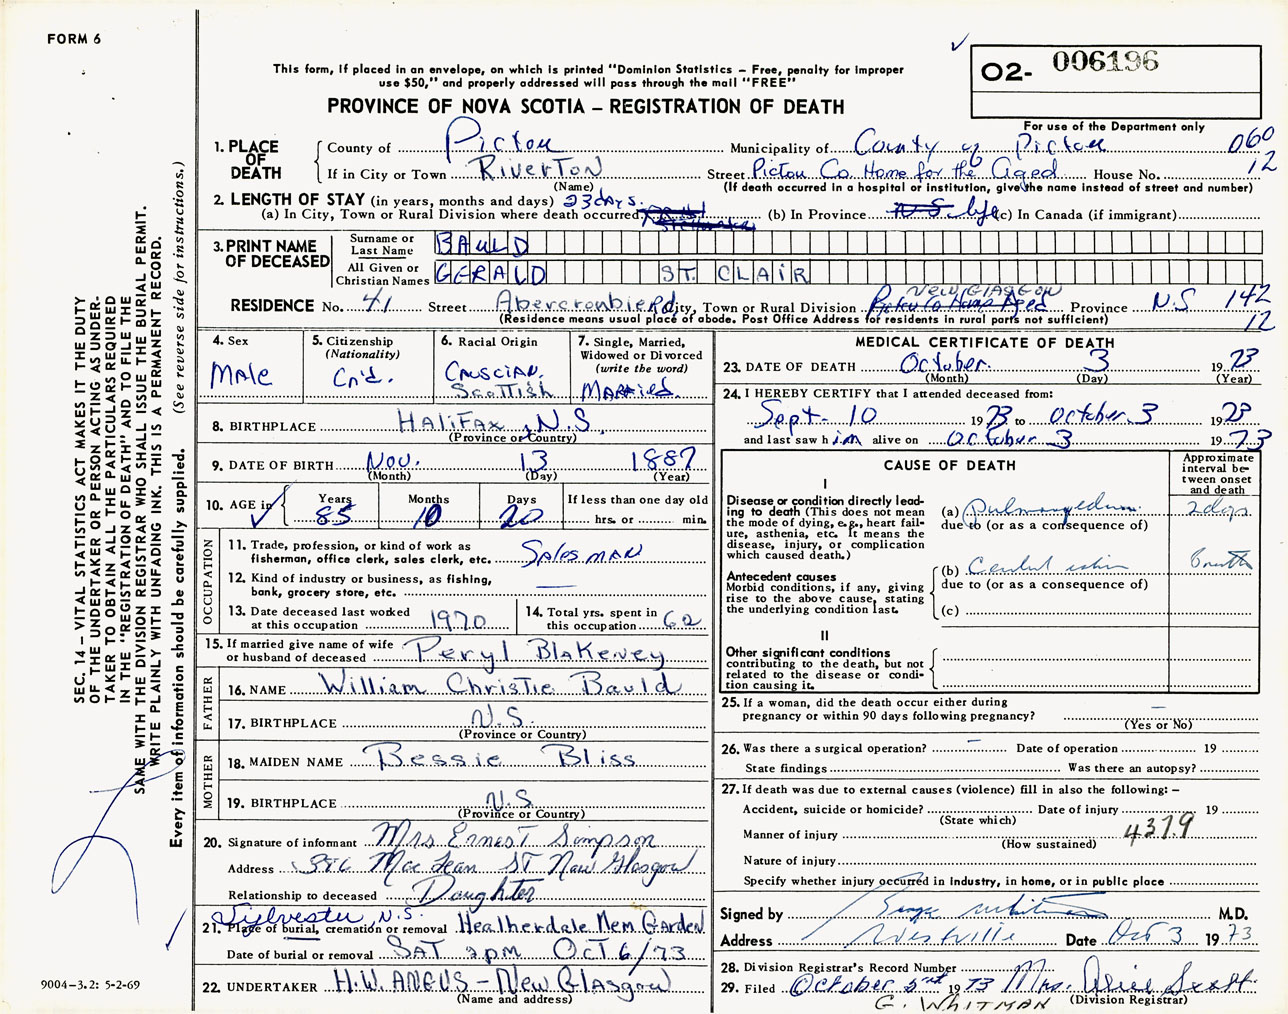 FORM 6
This form, if placed in an envelope, on which is printed "Dominion Statistics – Free, penalty for improper
use $50," and properly addressed will pass through the mail "FREE"
PROVINCE OF NOVA SCOTIA – REGISTRATION OF DEATH
O2- 006196
For use of the Department only
060
12
1. PLACE OF DEATH
County of Pictou Municipality of County of Pictou
If in City or Town Riverton Street Pictou Co. Home for the Aged House No.
(Name) (If death occurred in a hospital or institution, give the name instead of street and number)
2. LENGTH OF STAY (in years, months and days) 23 days.
(a) In City, Town or Rural Division where death occurred (b) In Province N S life (c) In Canada (if immigrant)
3. PRINT NAME OF DECEASED
Surname or Last Name BAULD
All Given or Christian Names GERALD ST. CLAIR
RESIDENCE No. 41 Street Abercrombie Rd City, Town or Rural Division New Glasgow Province N.S 142
(Residence means usual place of abode. Post Office Address for residents in rural parts not sufficient) 12
4. Sex
Male
5. Citizenship
(Nationality)
Cn'd.
6. Racial Origin
Causcian.
Scottish
7. Single, Married,
Widowed or Divorced
(write the word)
Married.
8. BIRTHPLACE Halifax, N.S.
(Province or Country)
9. DATE OF BIRTH Nov. 13 1887
(Month) (Day) (Year)
10. AGE in Years 85 Months 10 Days 20
If less than one day old
hrs. or min.
OCCUPATION
11. Trade, profession, or kind of work as
fisherman, office clerk, sales clerk, etc. Salesman
12. Kind of industry or business, as fishing,
bank, grocery store, etc. —
13. Date deceased last worked
at this occupation 1970
14. Total yrs. spent in
this occupation 62
15. If married give name of wife
or husband of deceased Peryl Blakeney
FATHER
16. NAME William Christie Bauld
17. BIRTHPLACE N.S.
(Province or Country)
MOTHER
18. MAIDEN NAME Bessie Bliss
19. BIRTHPLACE N.S
(Province or Country)
20. Signature of informant Mrs Ernest Simpson
Address MacLean St New Glasgow
Relationship to deceased Daughter
Sylvester, N.S.
21. Place of burial, cremation or removal Heatherdale Mem. Garden
Date of burial or removal Sat 2pm Oct 6/73
22. UNDERTAKER H.W. Angus – New Glasgow
(Name and address)
MEDICAL CERTIFICATE OF DEATH
23. DATE OF DEATH October 3 1973
(Month) (Day) (Year)
24. I HEREBY CERTIFY that I attended deceased from:
Sept. 10 1973 to October 3 1973
and last saw him alive on October 3 1973
CAUSE OF DEATH
Approximate
interval be-
tween onset
and death
I
Disease or condition directly lead-
ing to death (This does not mean
the mode of dying, e.g., heart fail-
ure, asthenia, etc. It means the
disease, injury, or complication
which caused death.)
(a) Pulmon edema 2 days
due to (or as a consequence of)
Antecedent causes
Morbid conditions, if any, giving
rise to the above cause, stating
the underlying condition last.
(b)
due to (or as a consequence of)
(c)
II
Other significant conditions
contributing to the death, but not
related to the disease or condi-
tion causing it.
25. If a woman, did the death occur either during
pregnancy or within 90 days following pregnancy? —
(Yes or No)
26. Was there a surgical operation? — Date of operation 19
State findings Was there an autopsy?
27. If death was due to external causes (violence) fill in also the following: –
Accident, suicide or homicide? Date of injury 19
(State which)
Manner of injury 4379
(How sustained)
Nature of injury
Specify whether injury occurred in industry, in home, or in public place
Signed by Whitman M.D.
Address Westville Date Oct 3 1973
28. Division Registrar's Record Number
29. Filed October 5nt 1973 Mrs. Alice Scott
G. Whitman (Division Registrar)
SEC. 14 – VITAL STATISTICS ACT MAKES IT THE DUTY
OF THE UNDERTAKER OR PERSON ACTING AS UNDER-
TAKER TO OBTAIN ALL THE PARTICULARS REQUIRED
IN THE "REGISTRATION OF DEATH" AND TO FILE THE
SAME WITH THE DIVISION REGISTRAR WHO SHALL ISSUE THE BURIAL PERMIT.
WRITE PLAINLY WITH UNFADING INK. THIS IS A PERMANENT RECORD.
Every item of information should be carefully supplied. (See reverse side for instructions.)
9004-3.2: 5-2-69